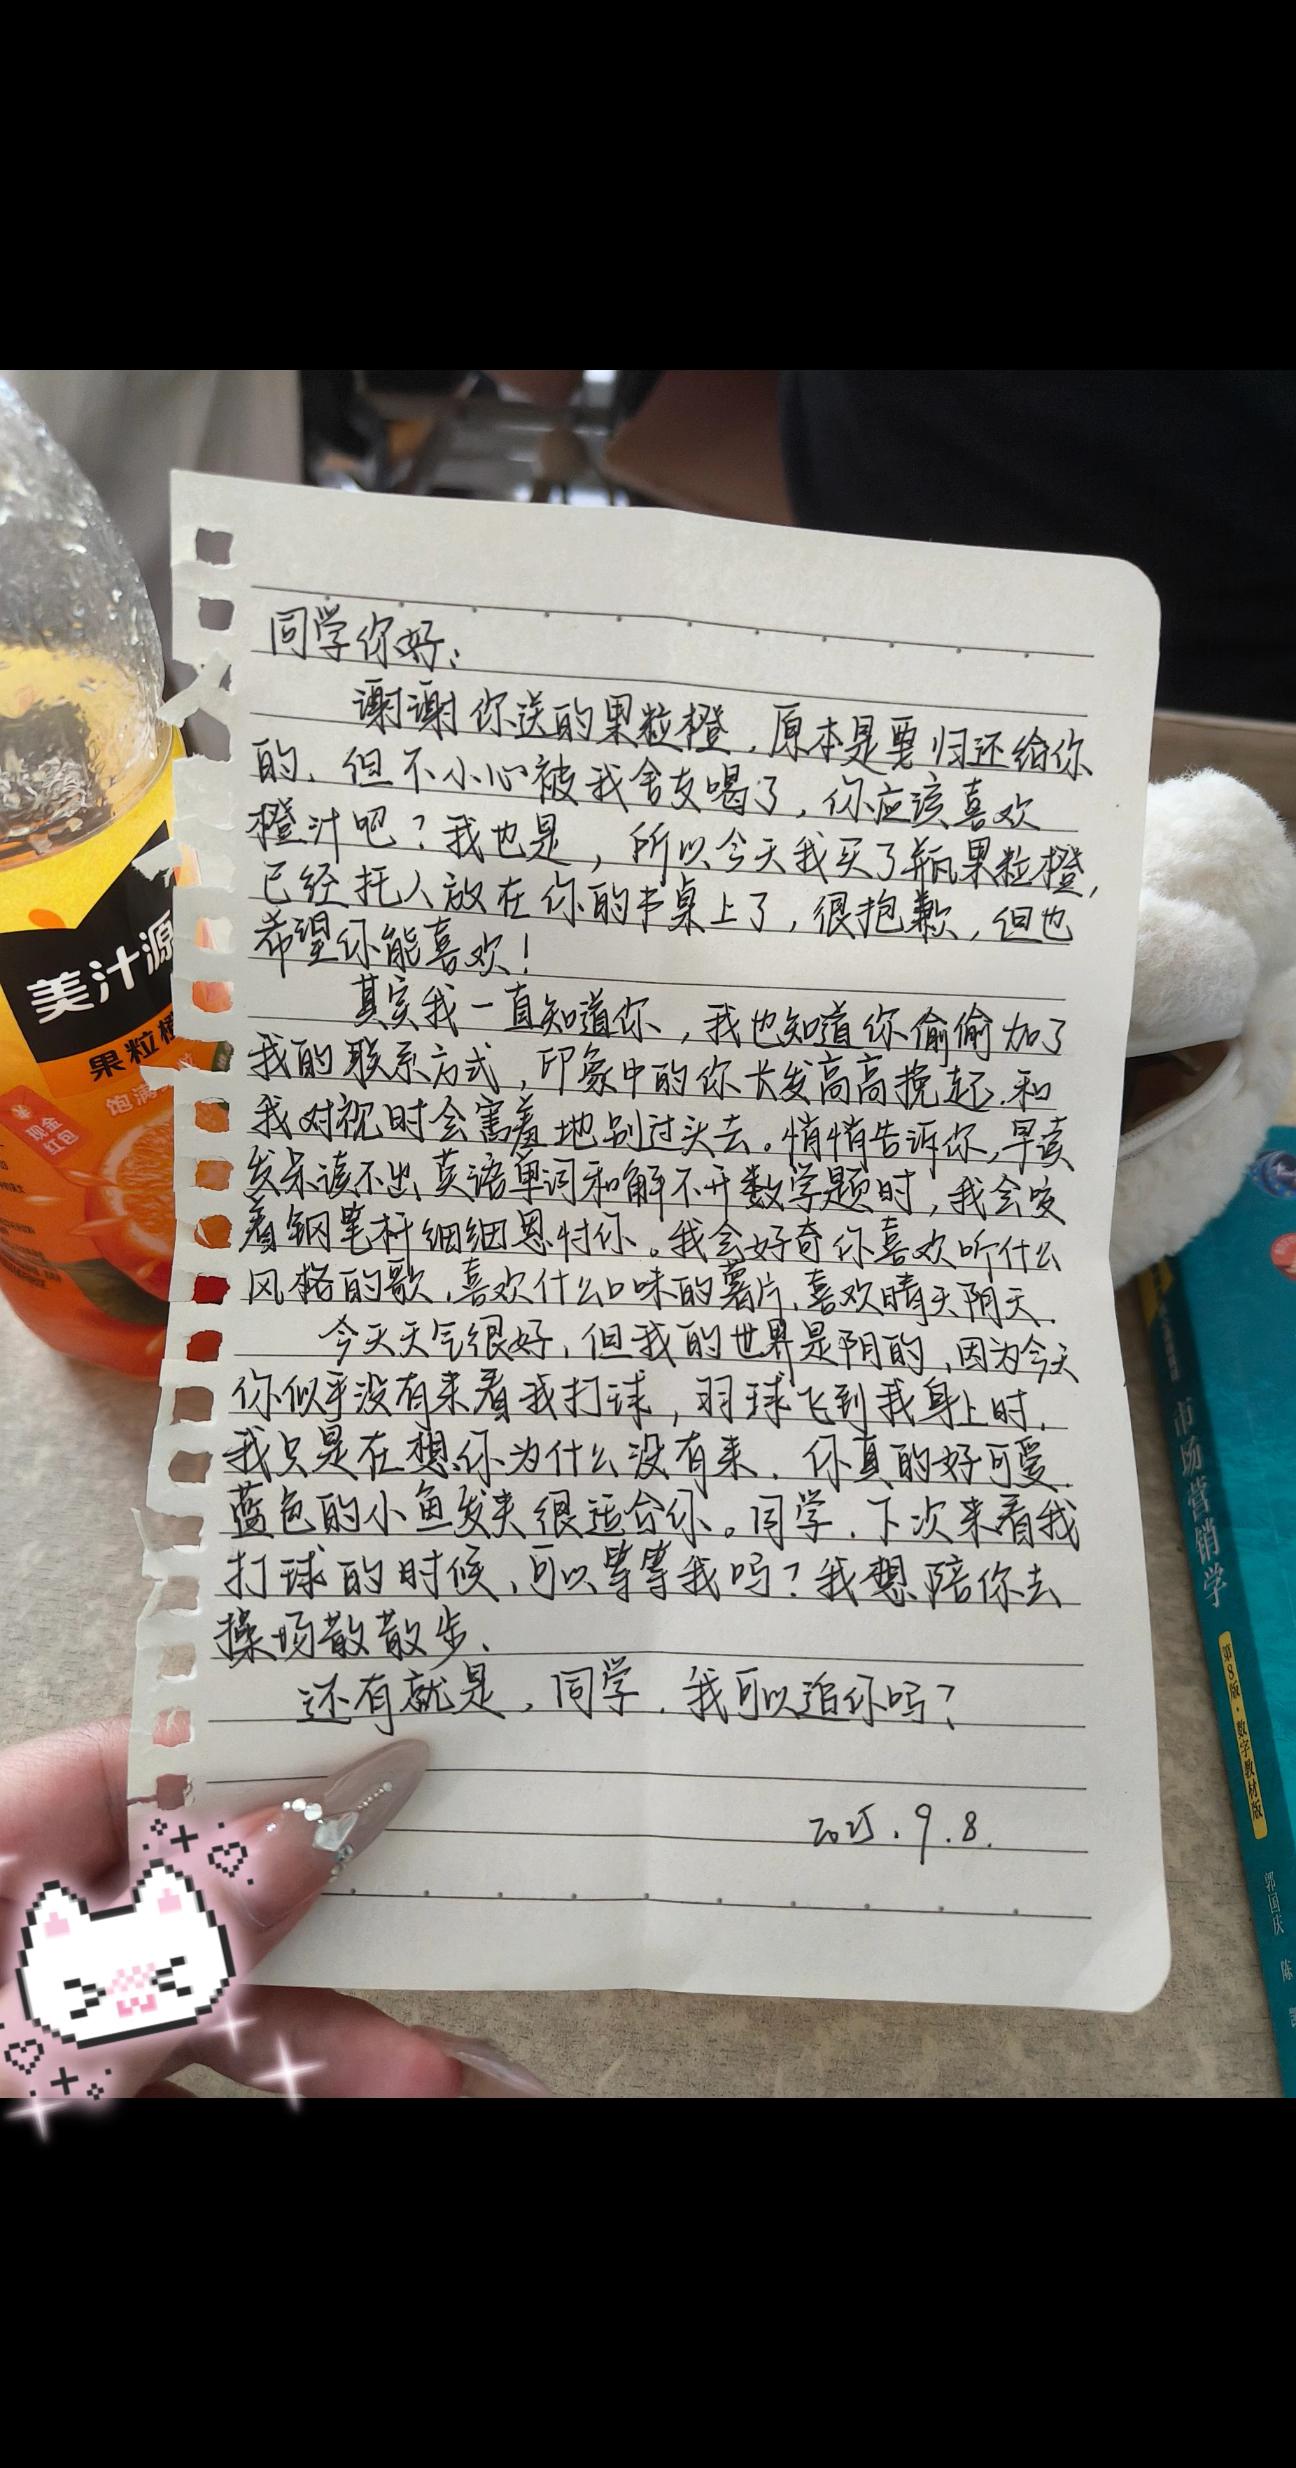 同学你好:
谢谢你送的果粒橙,原本是要归还给你
的,但不小心被我舍友喝了,你应该喜欢
橙汁吧?我也是,所以今天我买了瓶果粒橙,
已经托人放在你的书桌上了,很抱歉,但也
希望你能喜欢!
其实我一直知道你,我也知道你偷偷加了
我的联系方式,印象中的你长发高高挽起,和
我对视时会害羞地别过头去。悄悄告诉你,早读
发呆读不出英语单词和解不开数学题时,我会咬
着钢笔杆细细思忖你。我会好奇你喜欢听什么
风格的歌,喜欢什么口味的薯片,喜欢晴天阴天.
今天天气很好,但我的世界是阴的,因为今天
你似乎没有来看我打球,羽球飞到我身上时,
我只是在想你为什么没有来.你真的好可爱.
蓝色的小鱼发夹很适合你。同学,下次来看我
打球的时候,可以等等我吗?我想陪你去
操场散散步、
还有就是,同学,我可以追你吗?
2025.9.8.
美汁源
果粒橙
饱满
现金
红包
市场营销学
第8版·数字教材版
郭国庆 陈